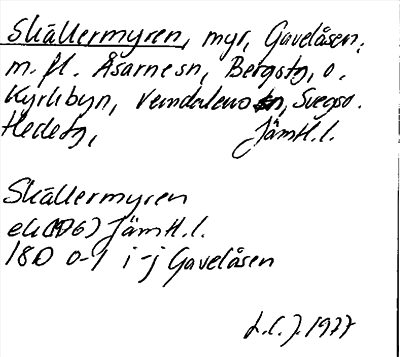 Skällermyren, myr, Gavelåsen,
m. fl. Åsarne sn, Bergs tg, o.
Kyrkbyn, Vemdalens sn, Svegs o.
Hede tg, Jämtl. l.
Skällermyren
ek (1976) Jämtl. l.
18D 0-1 i-j Gavelåsen
L.C.J. 1977